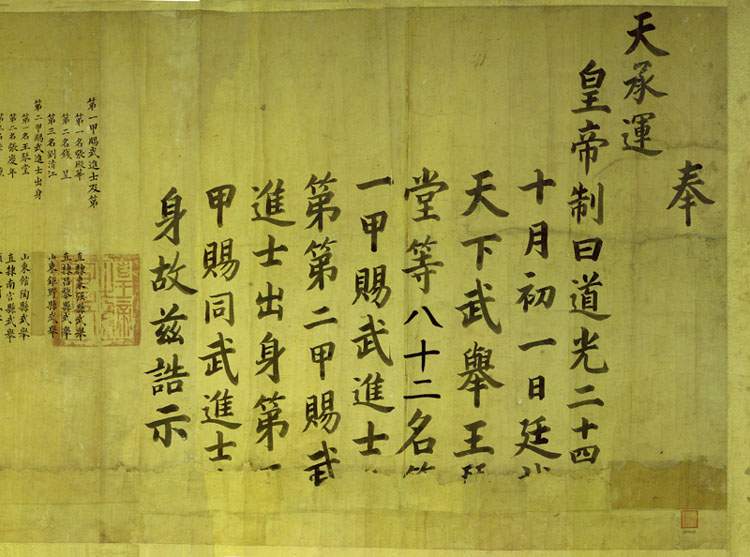 奉
天承運
皇帝制曰道光二十四
十月初一日廷
天下武舉王
堂等八十二名
一甲賜武進士
第第二甲賜武
進士出身第
甲賜同武進士
身故茲誥示
第一甲賜武進士及第
第一名張殿華 直隸縣武舉
第二名錢昱 直隸昌黎縣武舉
第三名劉清江 山東鉅野縣武舉
第二甲賜武進士出身
第一名王琴堂 山東館陶縣武舉
第二名張慶年 直隸南宮縣武舉